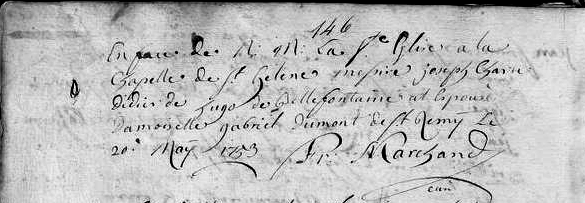 146
En face de N. M. La Ste Eglise a la
Chapelle de St helene messire joseph Charle
didier de hugo de Bellefontaine at Epousé
Damoiselle gabriel Dumont de St Remy Le
20e May 1753 Fr. Marchand
curé